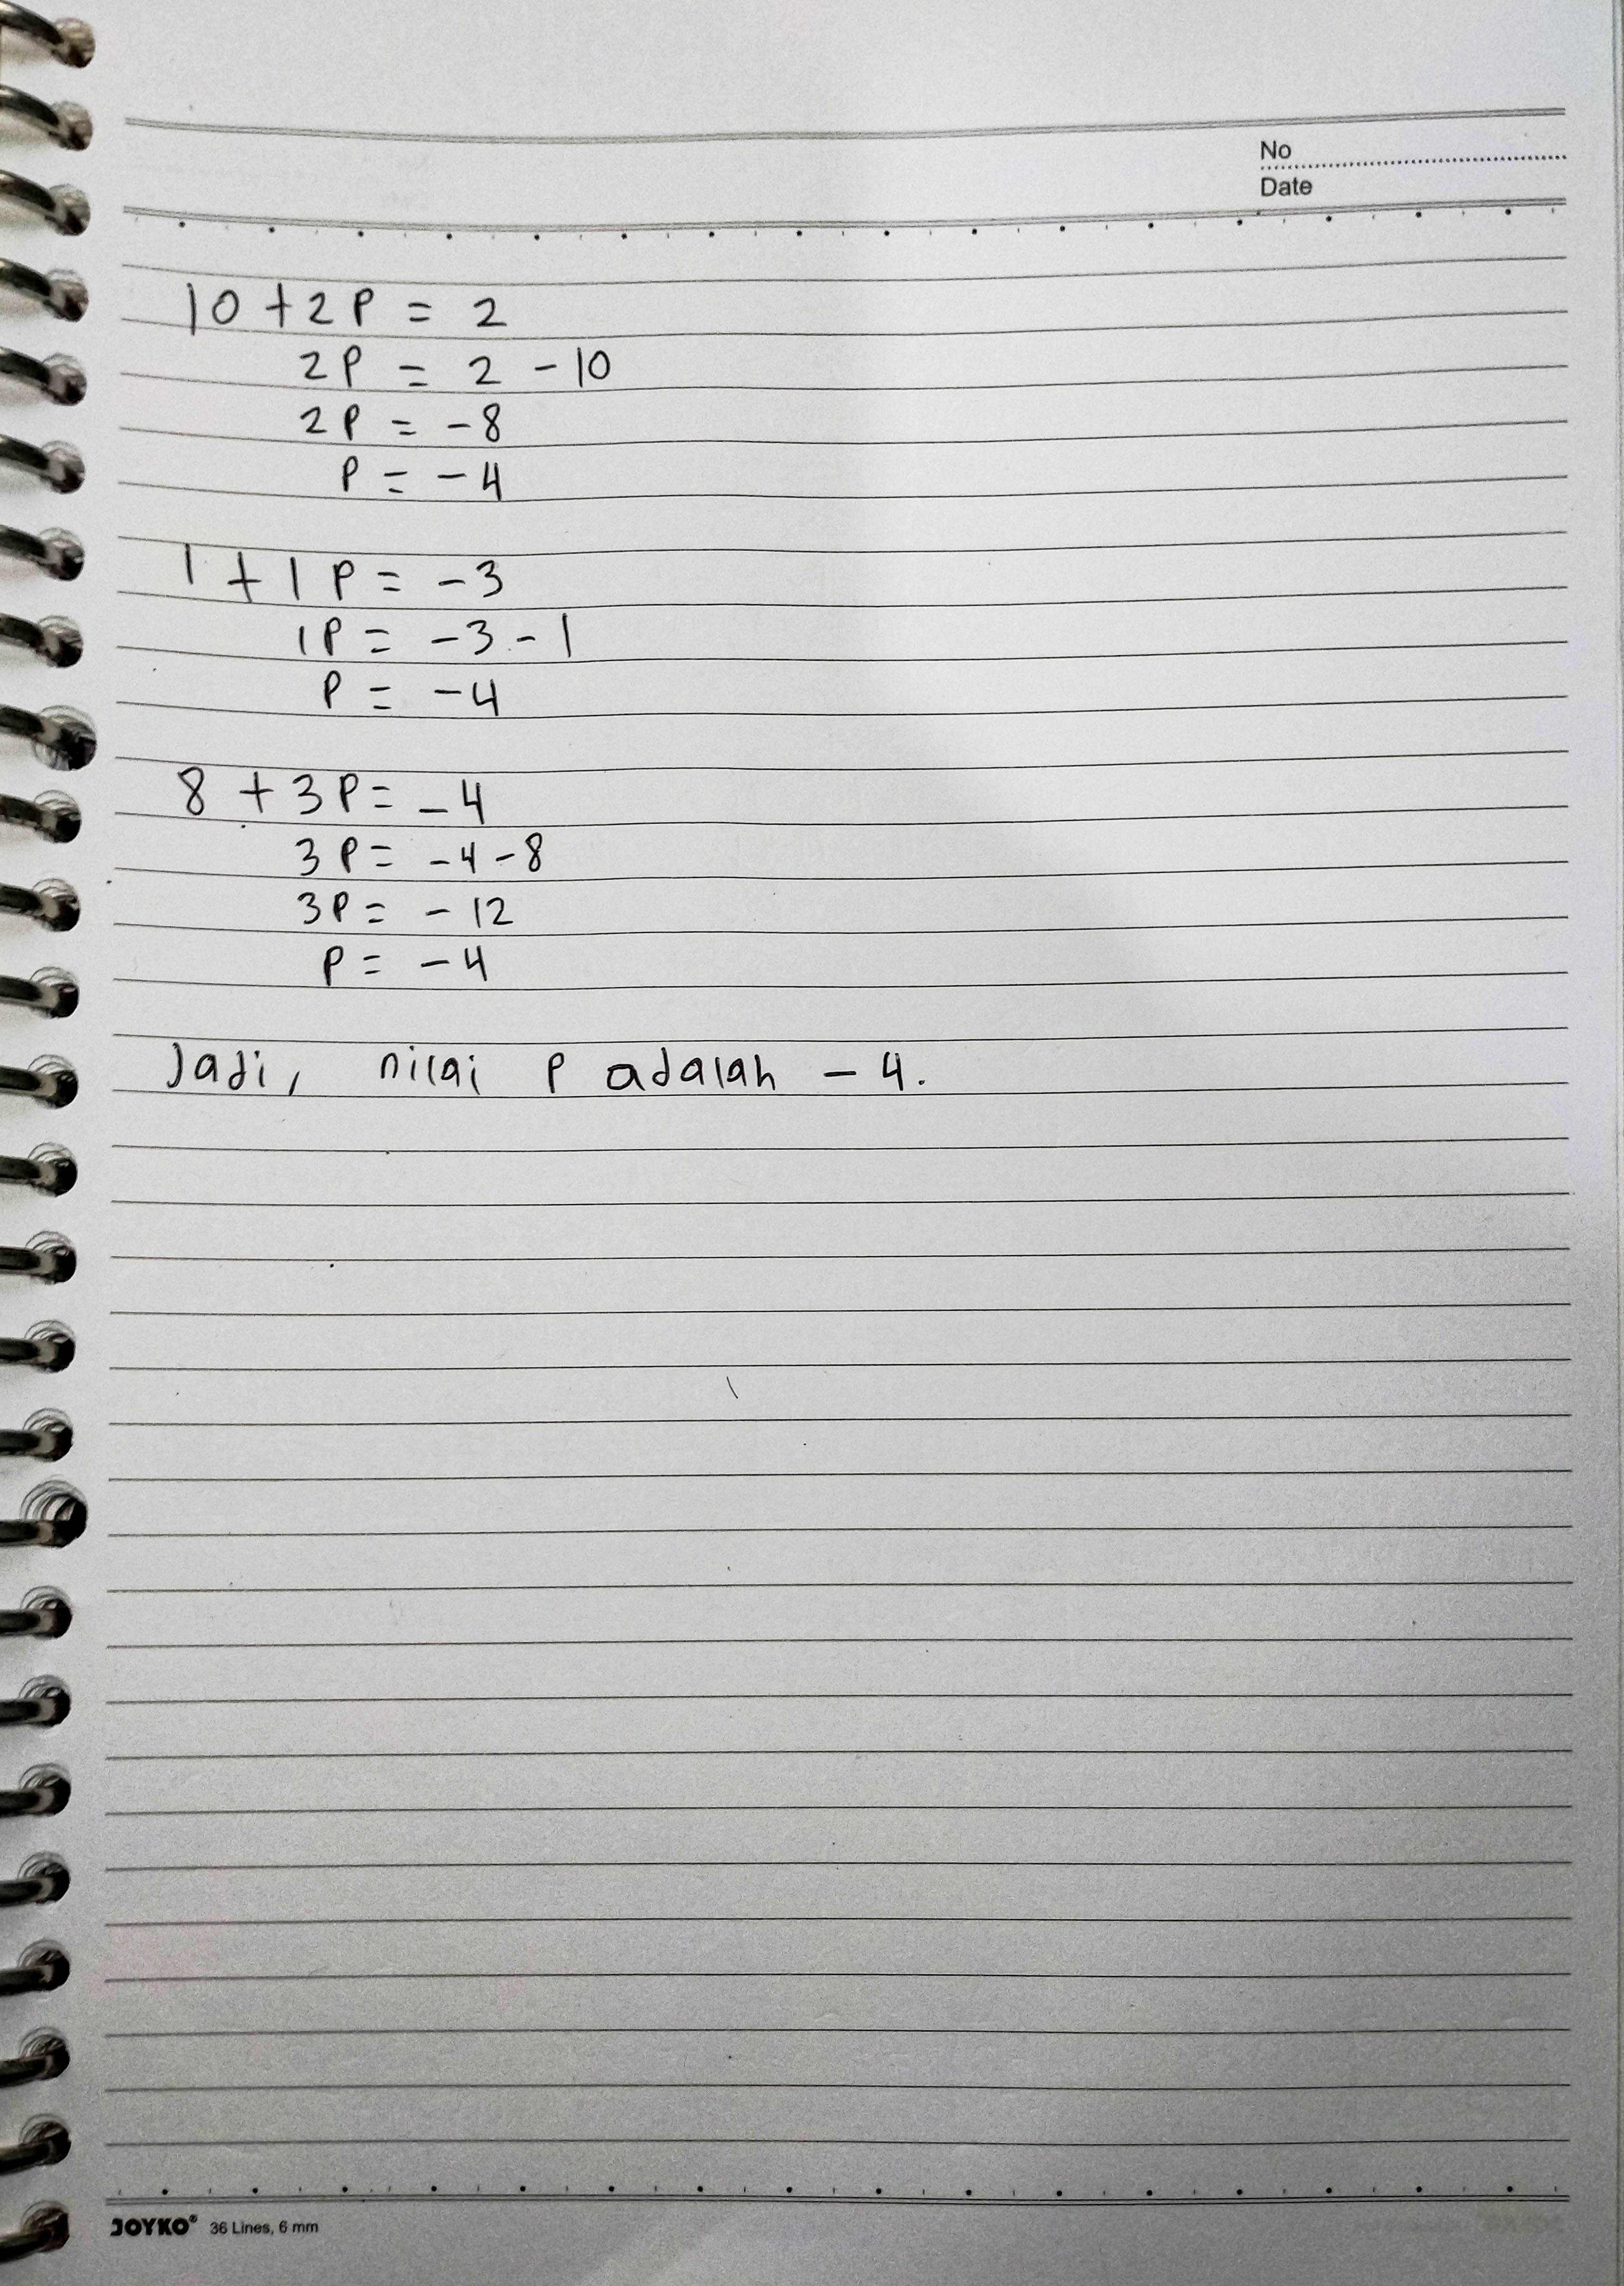 No
Date
10 + 2P = 2
2P = 2 - 10
2P = -8
P = -4
1 + 1P = -3
1P = -3 - 1
P = -4
8 + 3P = -4
3P = -4 - 8
3P = -12
P = -4
Jadi, nilai P adalah -4.
JOYKO® 36 Lines, 6 mm